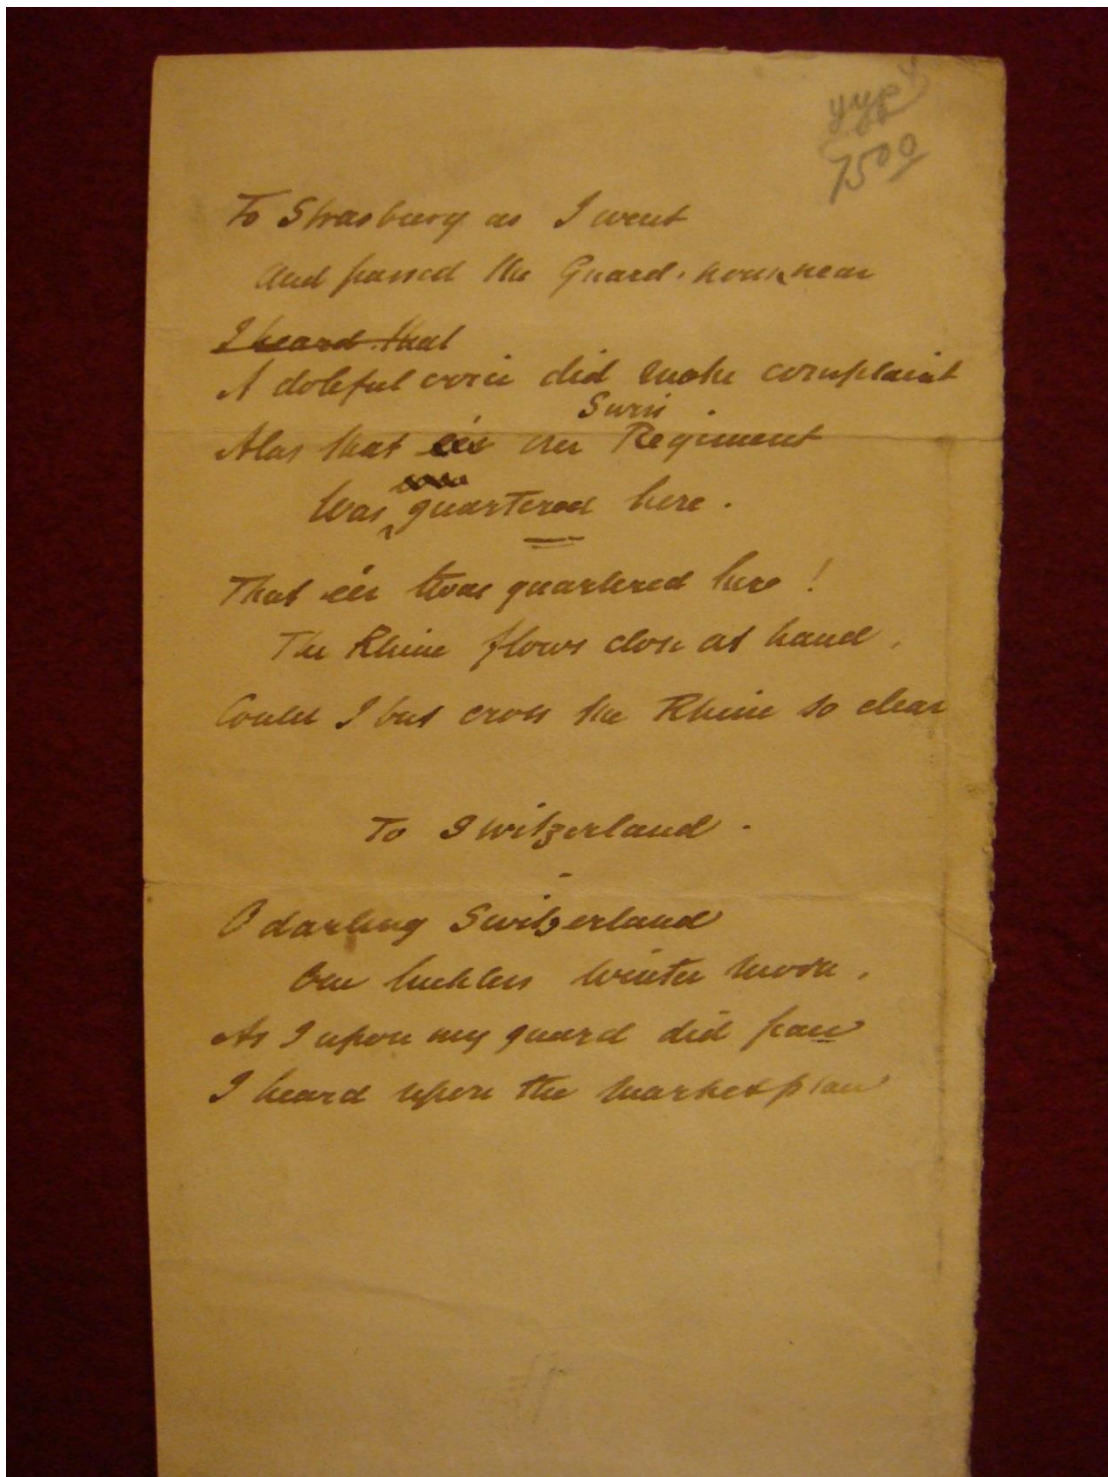 7500
To Strasburg as I went
And passed the Guard-house near
I heard that
A doleful voice did make complaint
Swiss
Alas that our Regiment
Was quartered here.
That e'er twas quartered here!
The Rhine flows close at hand,
Could I but cross the Rhine so clear
To Switzerland.
O darling Switzerland
One luckless winter morn,
As I upon my guard did pace
I heard upon the market place